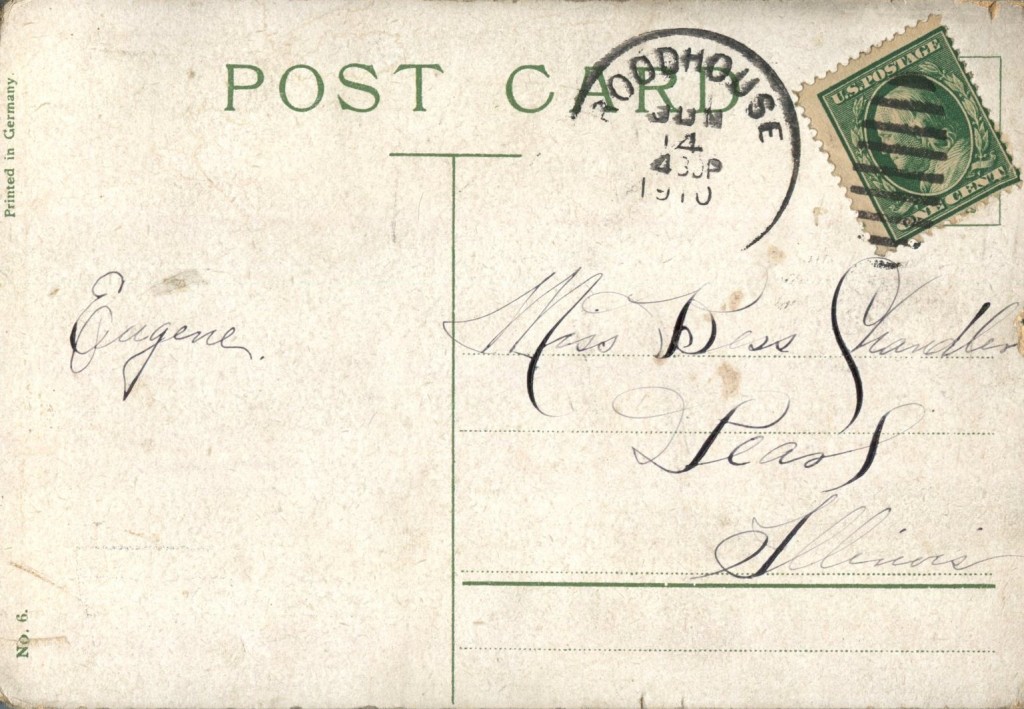 POST CARD
Printed in Germany
WOODHOUSE
JUN
14
430P
1910
U.S. POSTAGE
ONE CENT
Eugene.
Miss Bess Shandler
Pearl
Illinois
No. 6.